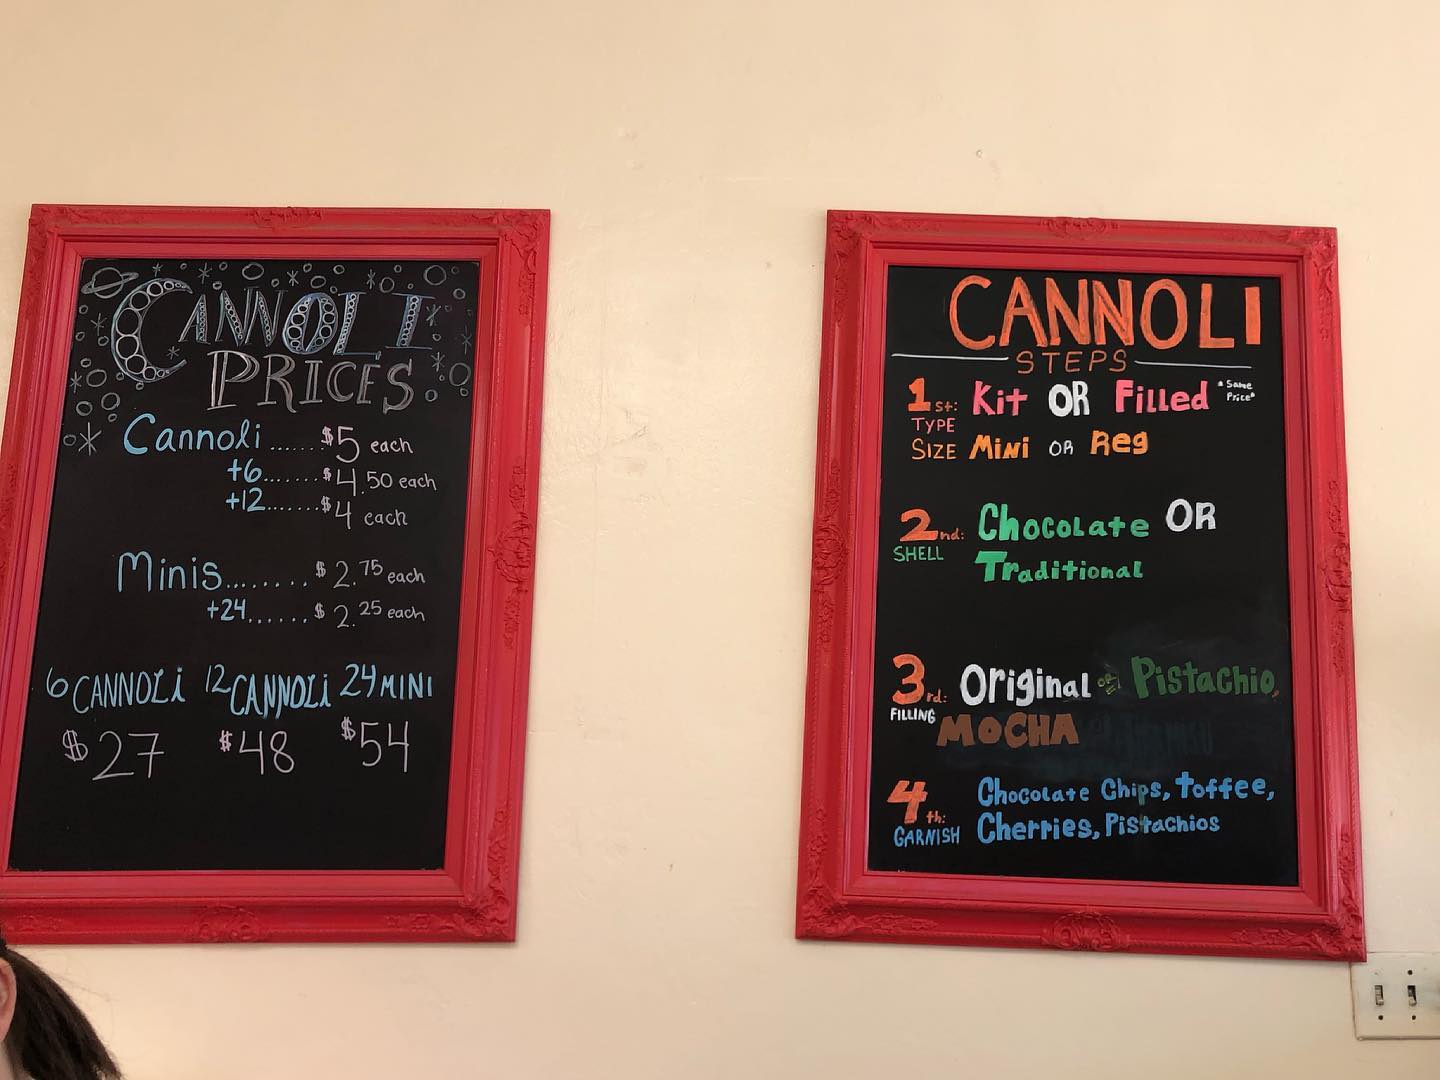 CANNOLI
PRICES
Cannoli ...... $5 each
+6 ....... $4.50 each
+12 ....... $4 each
Minis ........ $2.75 each
+24 ...... $2.25 each
6 CANNOLI 12 CANNOLI 24 MINI
$27 $48 $54
CANNOLI
STEPS
1st: Kit OR Filled *Same Price*
TYPE
SIZE Mini OR Reg
2nd: Chocolate OR
SHELL Traditional
3rd: Original Pistachio,
FILLING MOCHA
4th: Chocolate Chips, Toffee,
GARNISH Cherries, Pistachios